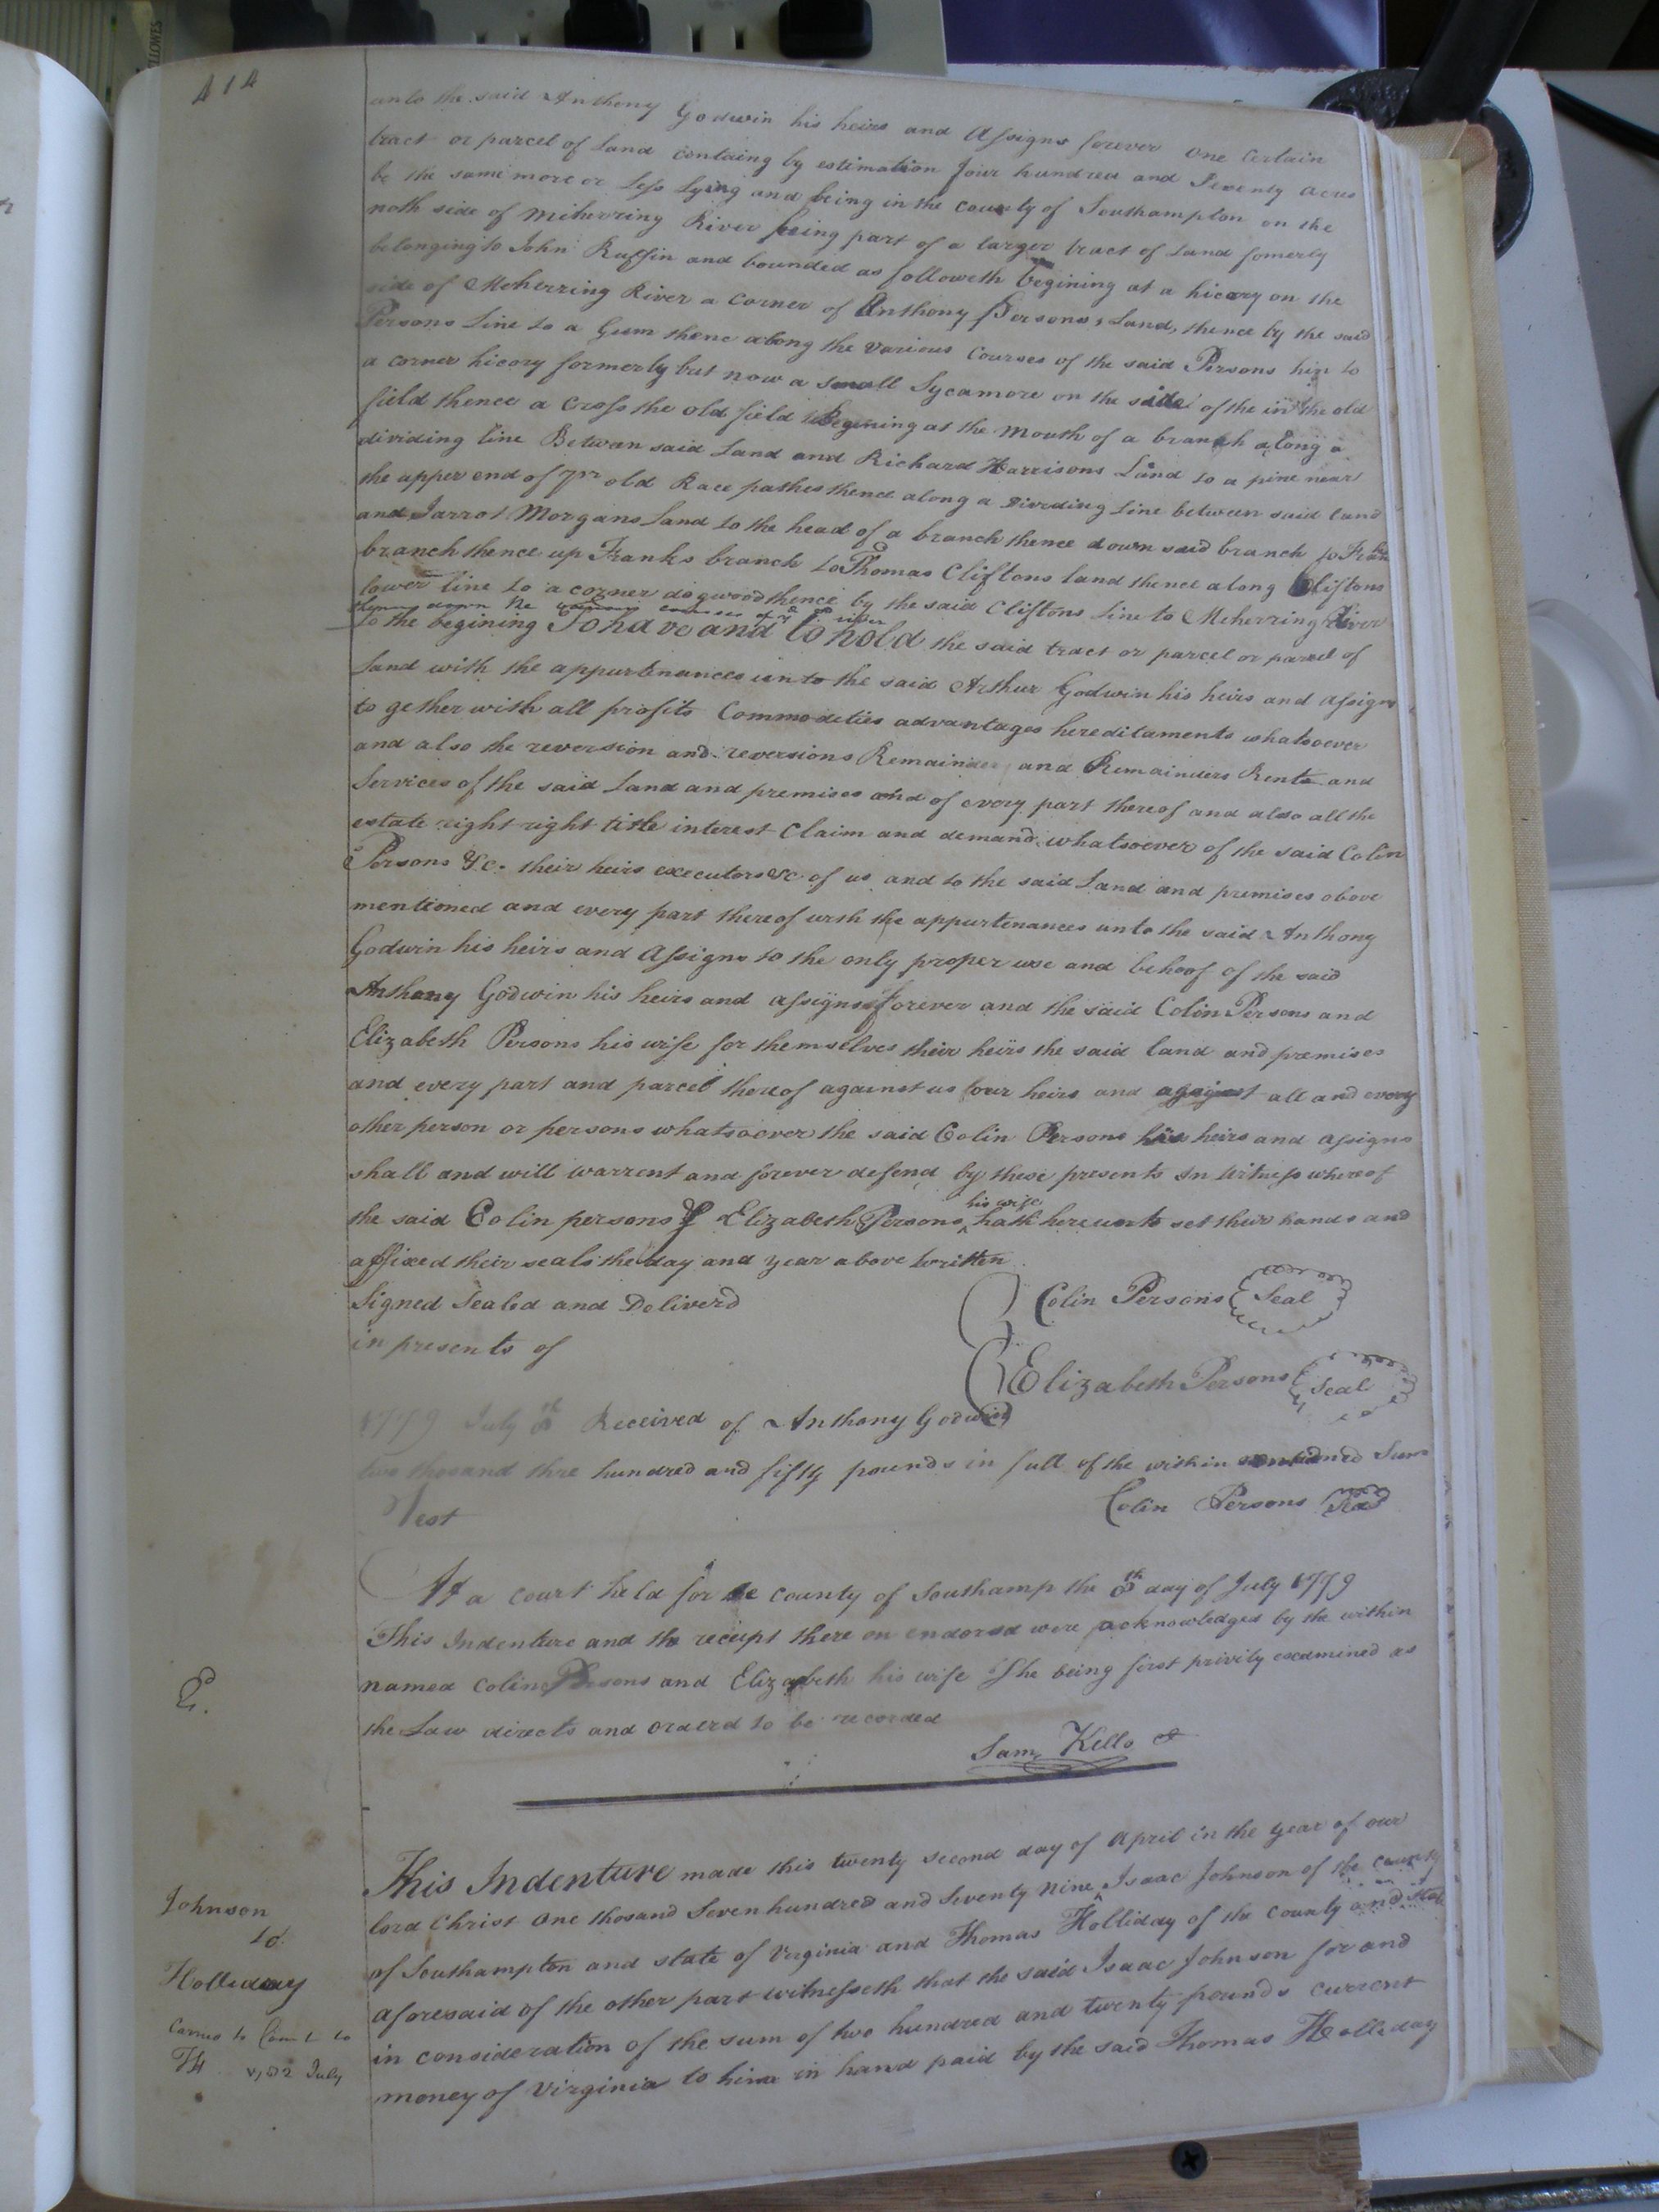 414
unto the said Anthony Godwin his heirs and Assigns forever one Certain
tract or parcel of Land containg by estimation four hundred and Seventy acres
be the same more or Less Lying and being in the county of Southampton on the
noth side of Miherring River being part of a larger tract of Land fomerly
belonging to John Ruffin and bounded as followeth begining at a hicory on the
side of Meherring River a Corner of Anthony Persons, Land, thence by the said
Persons Line to a Gum thenc along the various Courses of the said Persons hin to
a corner hicory formerly but now a small Sycamore on the side of the in the old
field thence a Cross the old field Begining at the Mouth of a branch along a
dividing line Betwen said Land and Richard Harrisons Land to a pine near
the upper end of old Race pathes thence along a Dividing Line between said land
and Jarrot Morgans Land to the head of a branch thence down said branch to Franks
branch thence up Franks branch to Thomas Cliftons land thence along Cliftons
lower line to a corner dogwood thence by the said Cliftons Line to Meherring River
thence down the courses of river
to the begining To have and to hold the said tract or parcel or parcel of
Land with the appurtenances unto the said Arthur Godwin his heirs and assigns
to gether with all profits Commodities advantages hereditaments whatsoever
and also the reversion and reversions Remainder and Remainders Rents and
Services of the said Land and premises and of every part thereof and also all the
estate right right title interest Claim and demand whatsoever of the said Colin
Persons &c. their heirs executors &c of us and to the said Land and premises above
mentioned and every part thereof with the appurtenances unto the said Anthony
Godwin his heirs and Assigns to the only proper use and behoof of the said
Anthony Godwin his heirs and assigns forever and the said Colin Persons and
Elizabeth Persons his wife for themselves their heirs the said land and premises
and every part and parcel thereof against us our heirs and against all and every
other person or persons whatsoever the said Colin Persons his heirs and assigns
shall and will warrent and forever defend by these presents In witness whereof
his wife
the said Colin persons & Elizabeth Persons hath hereunto set their hands and
affixed their seals the day and year above written
Signed Sealed and Deliverd
Colin Persons Seal
in presents of
Elizabeth Persons Seal
1779 July 8th Received of Anthony Godwin
two thosand thre hundred and fifty pounds in full of the within mentioned Sum
Test
Colin Persons Seal
At a court held for the county of Southamp the 8th day of July 1779
This Indenture and the reciept there on endorsed were acknowledged by the within
named Colin Persons and Elizabeth his wife She being first privily examined as
E.
the Law directs and orderd to be recorded
Sam Kello
This Indenture made this twenty second day of April in the year of our
lord Christ one thosand Seven hundred and Seventy nine Isaac Johnson of the county
of Southampton and state of Virginia and Thomas Holliday of the county and State
aforesaid of the other part witnesseth that the said Isaac Johnson for and
in consideration of the sum of two hundred and twenty pounds current
money of Virginia to him in hand paid by the said Thomas Holliday
Johnson
to
Holliday
July